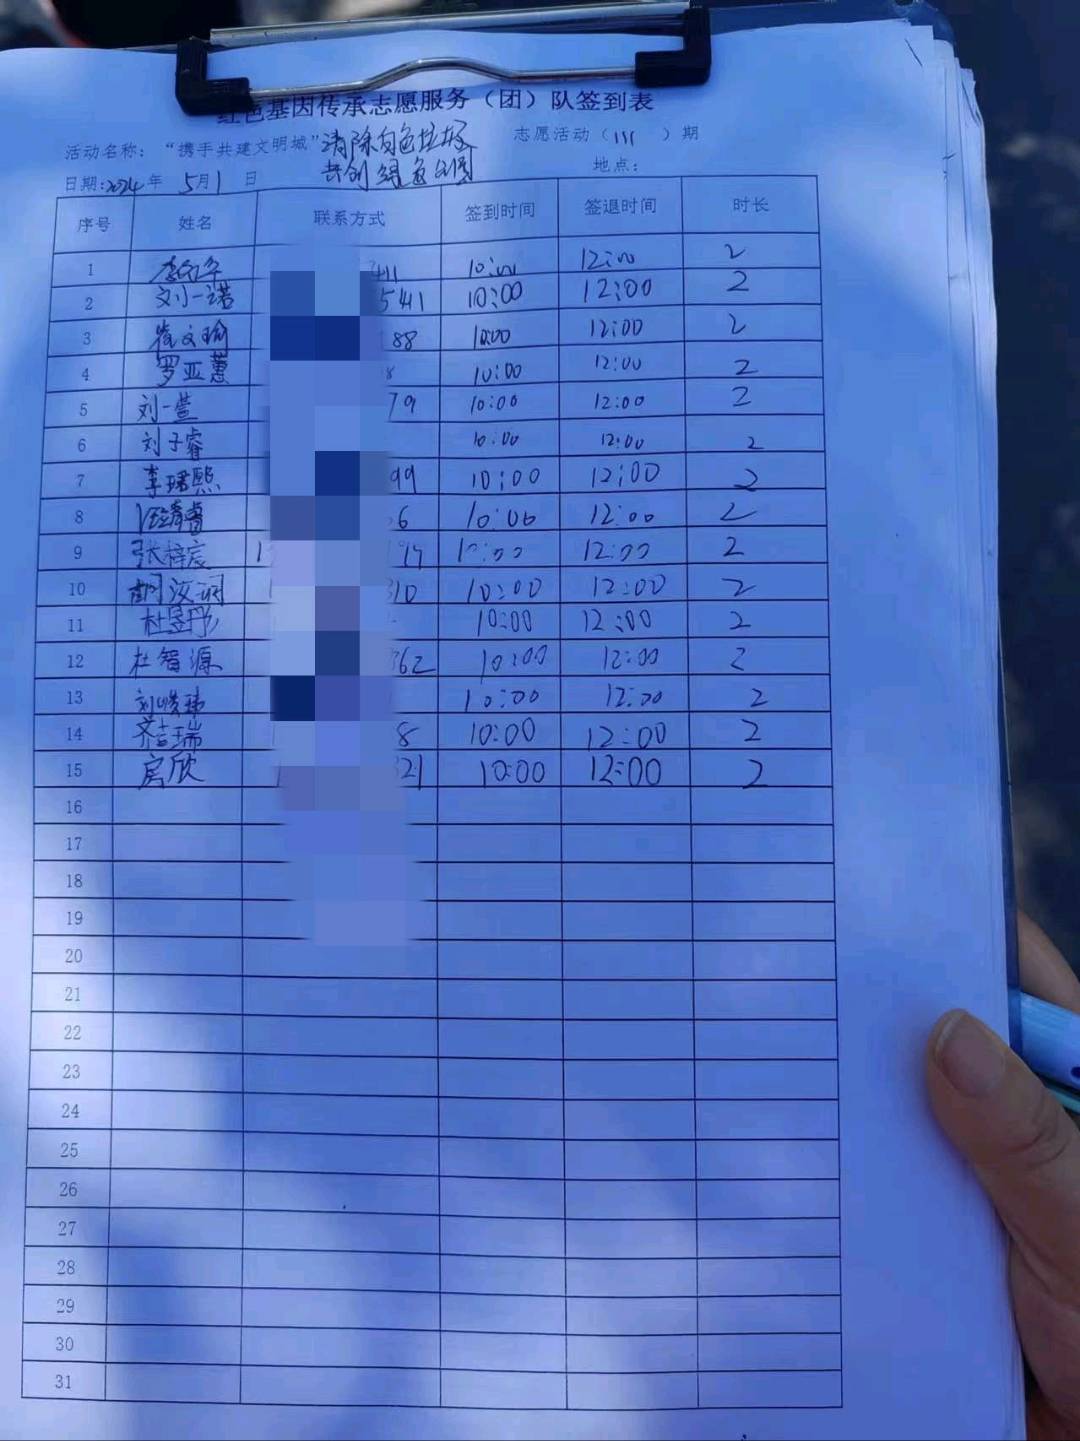 红色基因传承志愿服务（团）队签到表
活动名称：“携手共建文明城”清除白色垃圾 志愿活动（111）期
共创绿色公园
日期:2024年 5月1日 地点：
序号 姓名 联系方式 签到时间 签退时间 时长
1 411 10:00 12:00 2
2 刘一诺 541 10:00 12:00 2
3 崔文瑜 88 10:00 12:00 2
4 罗亚蕙 8 10:00 12:00 2
5 刘一萱 79 10:00 12:00 2
6 刘子睿 10:00 12:00 2
7 李珺熙 99 10:00 12:00 2
8 汪靖睿 6 10:00 12:00 2
9 张梓宸 1 10:00 12:00 2
10 310 10:00 12:00 2
11 杜昱彤 10:00 12:00 2
12 杜智源 362 10:00 12:00 2
13 刘峻玮 10:00 12:00 2
14 齐吉瑞 8 10:00 12:00 2
15 房欣 321 10:00 12:00 2
16
17
18
19
20
21
22
23
24
25
26
27
28
29
30
31